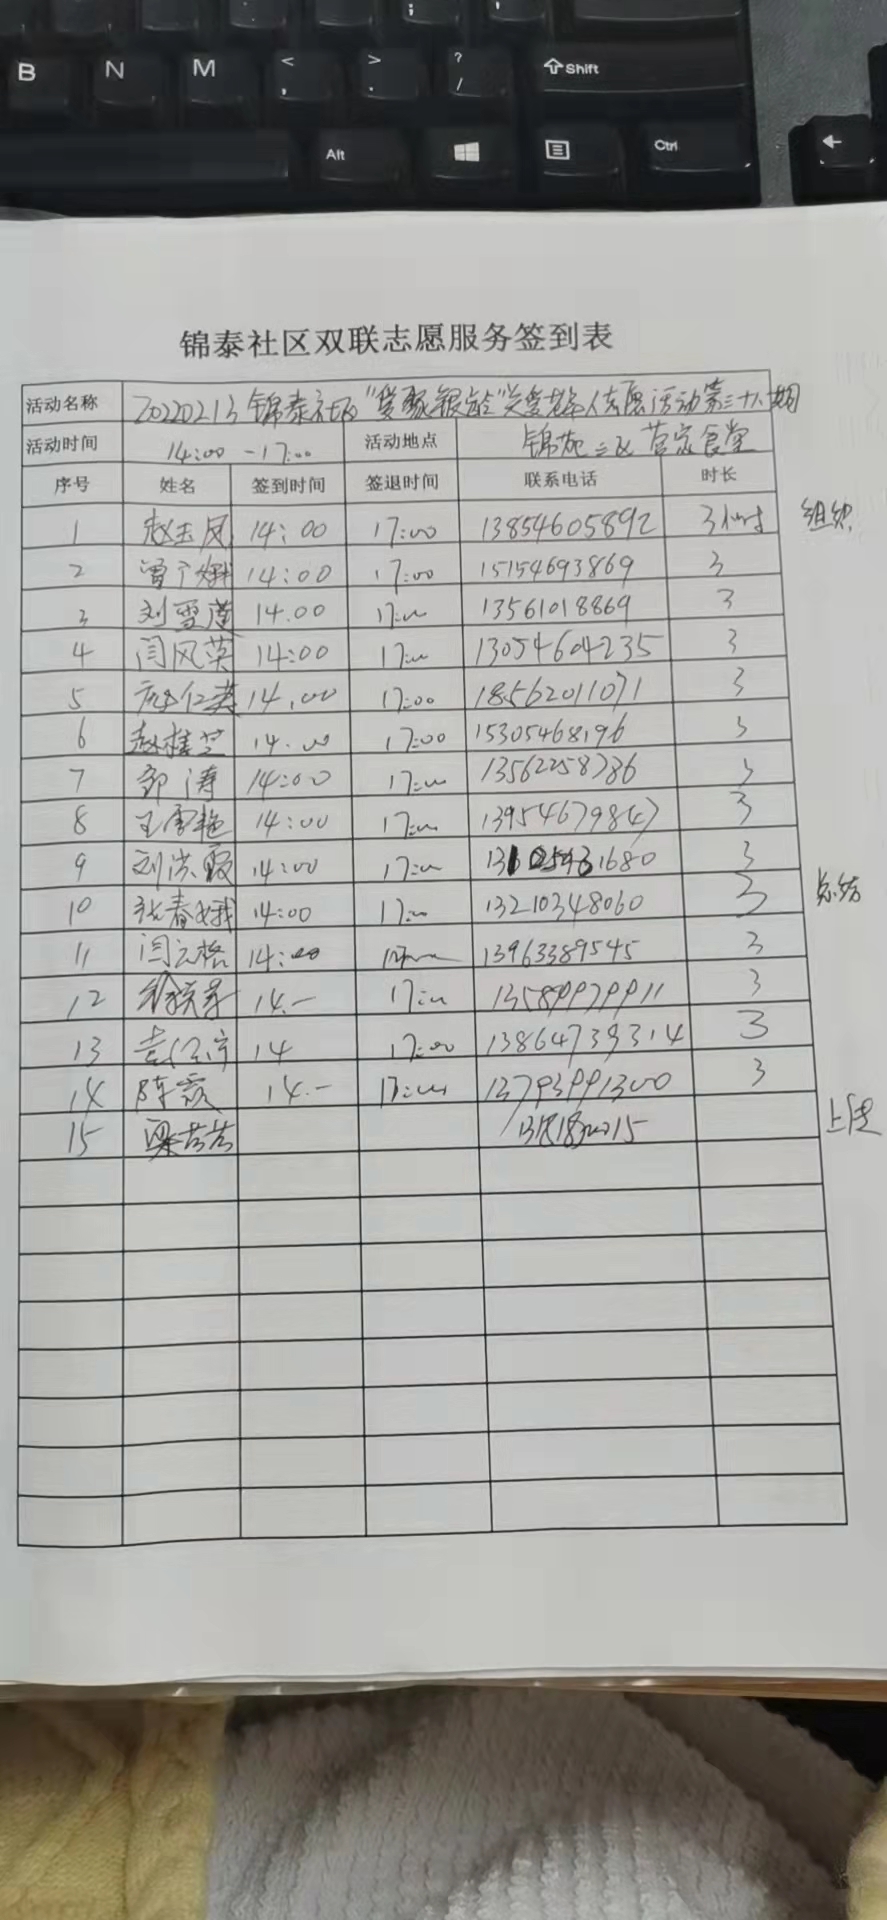 B N M < , > . ? / Shift
Alt Ctrl
锦泰社区双联志愿服务签到表
活动名称 20220213 锦泰社区"爱聚银龄"关爱老年人志愿活动第三十八期
活动时间 14:00-17:00 活动地点 锦苑二区 食堂
序号 姓名 签到时间 签退时间 联系电话 时长
1 赵玉凤 14:00 17:00 13854605892 3小时 组织
2 14:00 17:00 15154693869 3
3 刘雪莲 14.00 17:00 13561018869 3
4 闫风英 14:00 17:00 13054604235 3
5 14.00 17:00 18562011071 3
6 赵桂芝 14.00 17:00 15305468196 3
7 郭涛 14:00 17:00 13562258786 3
8 王雪艳 14:00 17:00 13954679847 3
9 刘洪霞 14:00 17:00 3
10 张春娥 14:00 17:00 13210348060 3 总结
11 闫云格 14:00 13963389545 3
12 14.- 17:00 13589979911 3
13 14 17:00 13864739314 3
14 陈霞 14.- 17:00 13793991300 3
15 梁芸芸 上传